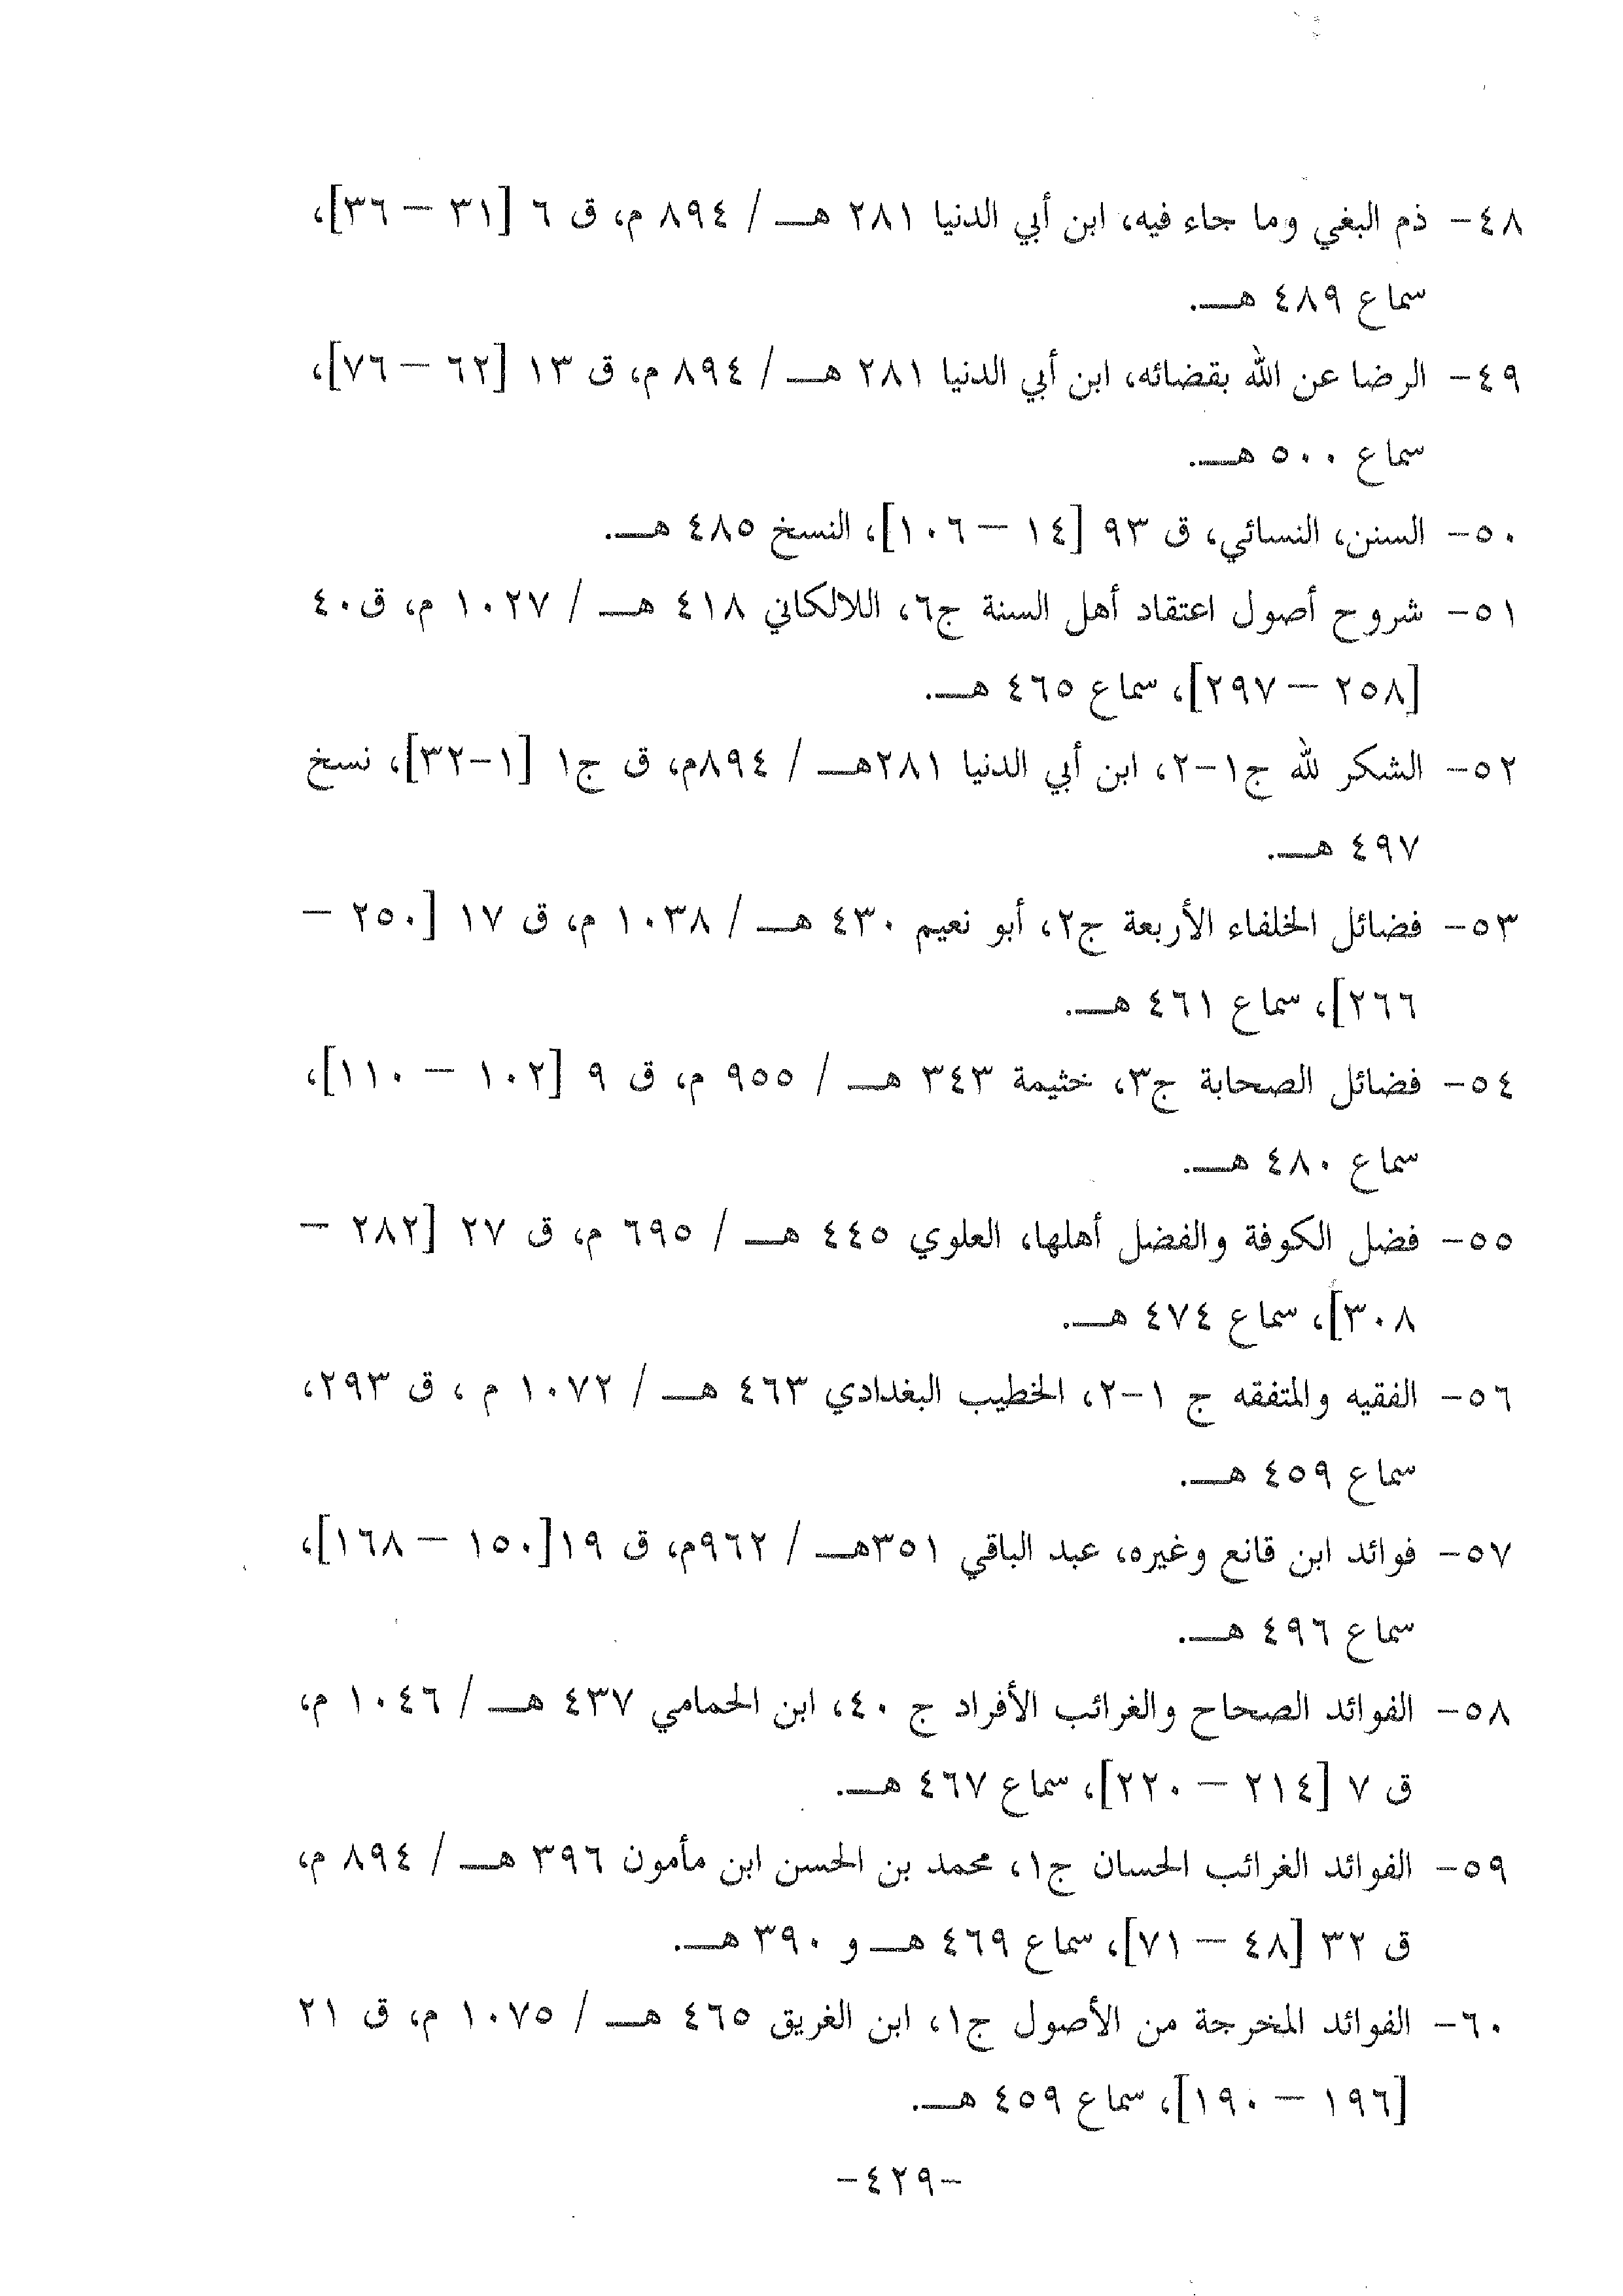 ٤٨- ذم البغي وما جاء فيه، ابن أبي الدنيا ٢٨١ هـ / ٨٩٤ م، ق ٦ [٣١ – ٣٦]،
سماع ٤٨٩ هـ.
٤٩- الرضا عن الله بقضائه، ابن أبي الدنيا ٢٨١ هـ / ٨٩٤ م، ق ١٣ [٦٢ – ٧٦]،
سماع ٥٠٠ هـ.
٥٠- السنن، النسائي، ق ٩٣ [١٤ – ١٠٦]، النسخ ٤٨٥ هـ.
٥١- شروح أصول اعتقاد أهل السنة ج٦، اللالكاني ٤١٨ هـ / ١٠٢٧ م، ق٤٠
[٢٥٨ – ٢٩٧]، سماع ٤٦٥ هـ.
٥٢- الشكر لله ج١-٢، ابن أبي الدنيا ٢٨١هـ / ٨٩٤م، ق ج١ [١-٣٢]، نسخ
٤٩٧ هـ.
٥٣- فضائل الخلفاء الأربعة ج٢، أبو نعيم ٤٣٠ هـ / ١٠٣٨ م، ق ١٧ [٢٥٠ –
٢٦٦]، سماع ٤٦١ هـ.
٥٤- فضائل الصحابة ج٣، خثيمة ٣٤٣ هـ / ٩٥٥ م، ق ٩ [١٠٢ – ١١٠]،
سماع ٤٨٠ هـ.
٥٥- فضل الكوفة والفضل أهلها، العلوي ٤٤٥ هـ / ٦٩٥ م، ق ٢٧ [٢٨٢ –
٣٠٨]، سماع ٤٧٤ هـ.
٥٦- الفقيه والمتفقه ج ١-٢، الخطيب البغدادي ٤٦٣ هـ / ١٠٧٢ م ، ق ٢٩٣،
سماع ٤٥٩ هـ.
٥٧- فوائد ابن قانع وغيره، عبد الباقي ٣٥١هـ / ٩٦٢م، ق ١٩[١٥٠ – ١٦٨]،
سماع ٤٩٦ هـ.
٥٨- الفوائد الصحاح والغرائب الأفراد ج ٤٠، ابن الحمامي ٤٣٧ هـ / ١٠٤٦ م،
ق ٧ [٢١٤ – ٢٢٠]، سماع ٤٦٧ هـ.
٥٩- الفوائد الغرائب الحسان ج١، محمد بن الحسن ابن مأمون ٣٩٦ هـ / ٨٩٤ م،
ق ٣٢ [٤٨ – ٧١]، سماع ٤٦٩ هـ و ٣٩٠ هـ.
٦٠- الفوائد المخرجة من الأصول ج١، ابن الغريق ٤٦٥ هـ / ١٠٧٥ م، ق ٢١
[١٩٦ – ١٩٠]، سماع ٤٥٩ هـ.
-٤٢٩-